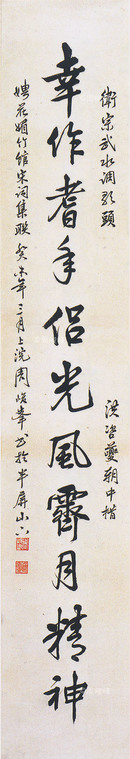 衛宗武水調歌頭
洪咨夔朝中措
幸作耆年侶光風霽月精神
娉花媚竹館宋詞集聯癸未年三月上浣周峯書於半屏山下